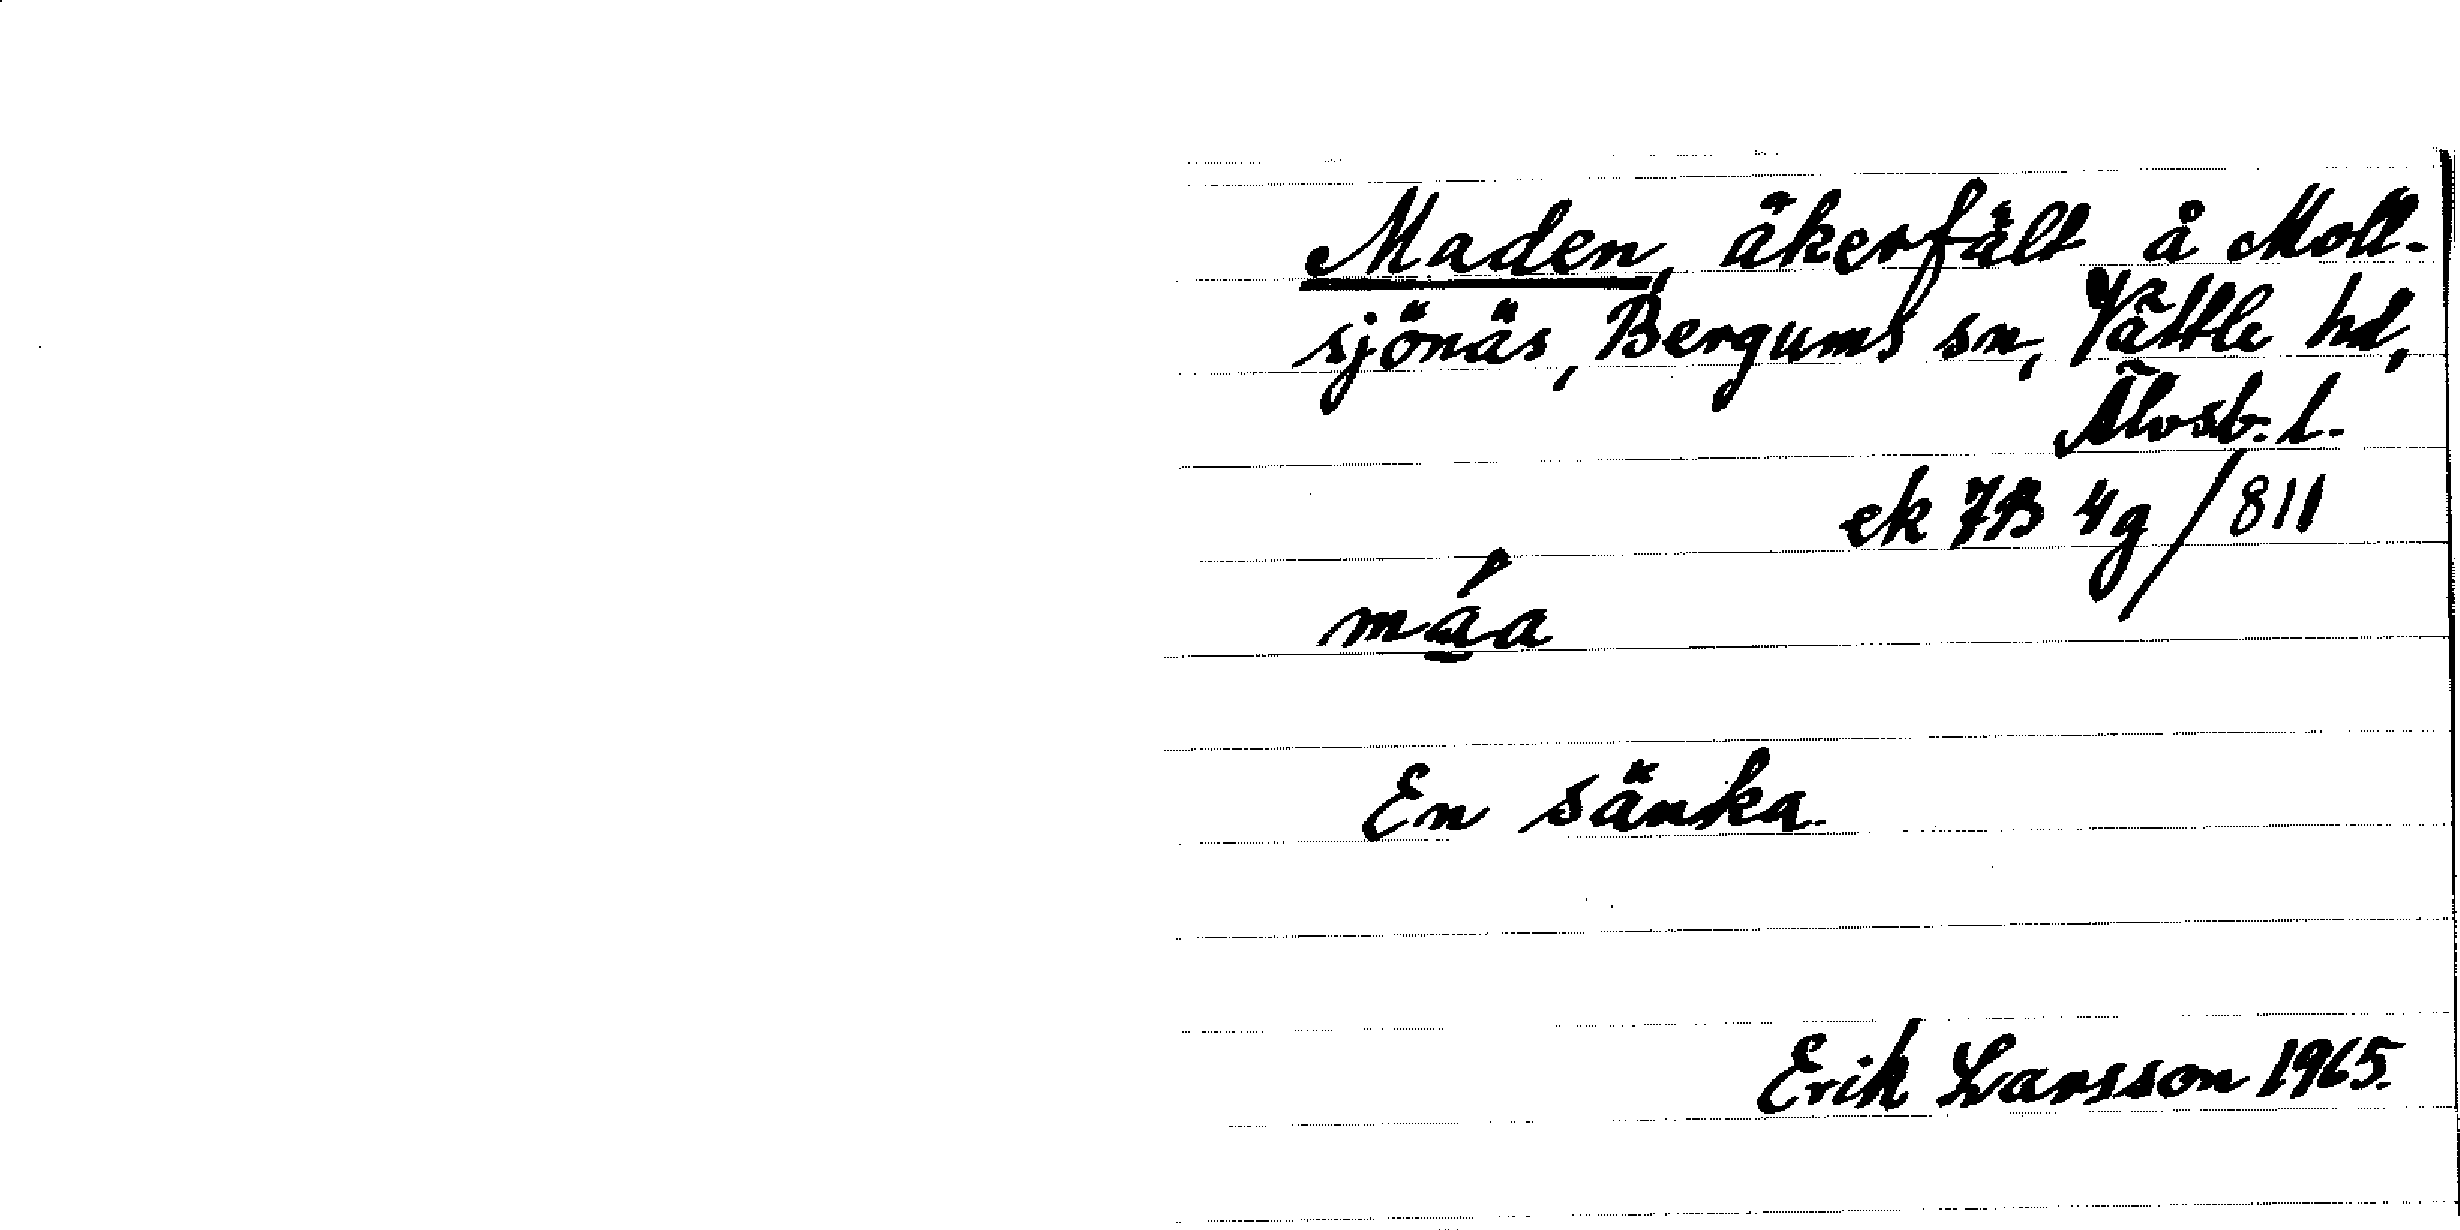 Maden, åkerfält å Moll-
sjönäs, Bergums sn, Vättle hd,
Älvsb. l.
ek 7B 4g/811
má̲a
En sänka.
Erik Larsson 1965.